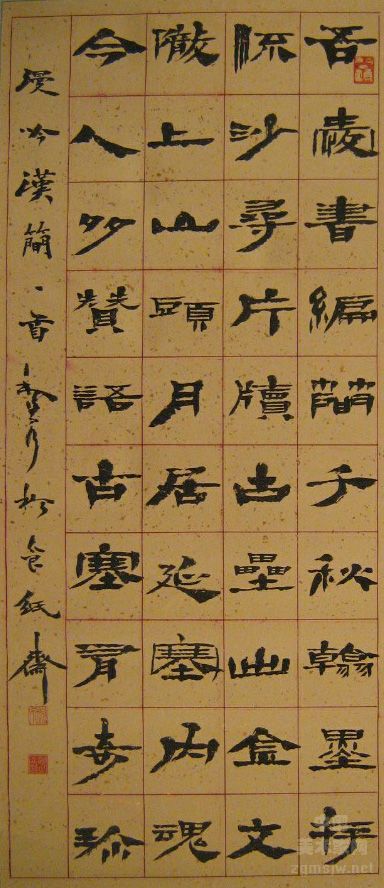 吾書編簡千秋翰墨存
流沙尋片牘古壘出金文
徹上山頭月居延塞内魂
今人多贊語古塞有奇珍
漫吟漢簡一首於食紙齋
zgmsjw.net